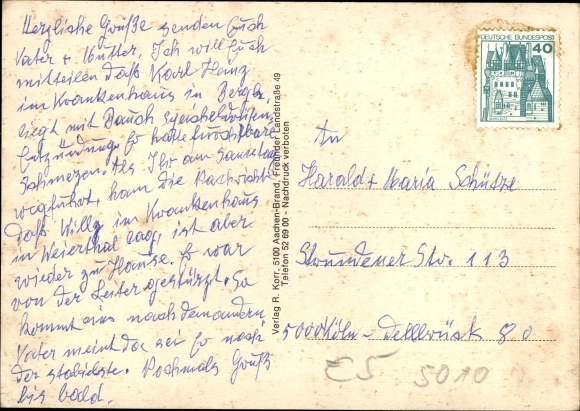 Herzliche Grüße senden Euch
Vater + Mutter, Ich will Euch
mitteilen daß Karl Hanz
im Krankenhaus in Bergh.
liegt mit Bauchspeicheldrüsen
Entzündung. Er hatte furchtbare
Schmerzen. Als Ihr am Samstag
wegfuhrt, kam die Nachricht
daß Willy im Krankenhaus
in Weierthal lag, ist aber
wieder zu Hause. Er war
von der Leiter gestürzt. So
kommt eins nach dem andern
Vater meint doc sei Er noch
der stabilste. Nochmals Gruß
bis bald.
Verlag R. Korr, 5100 Aachen-Brand, Freunder Landstraße 49
Telefon 52 89 00 - Nachdruck verboten
DEUTSCHE BUNDESPOST
40
An
Harald + Maria Schütze
Strundener Str. 113
5000 Köln - Dellbrück 80
E5 5010